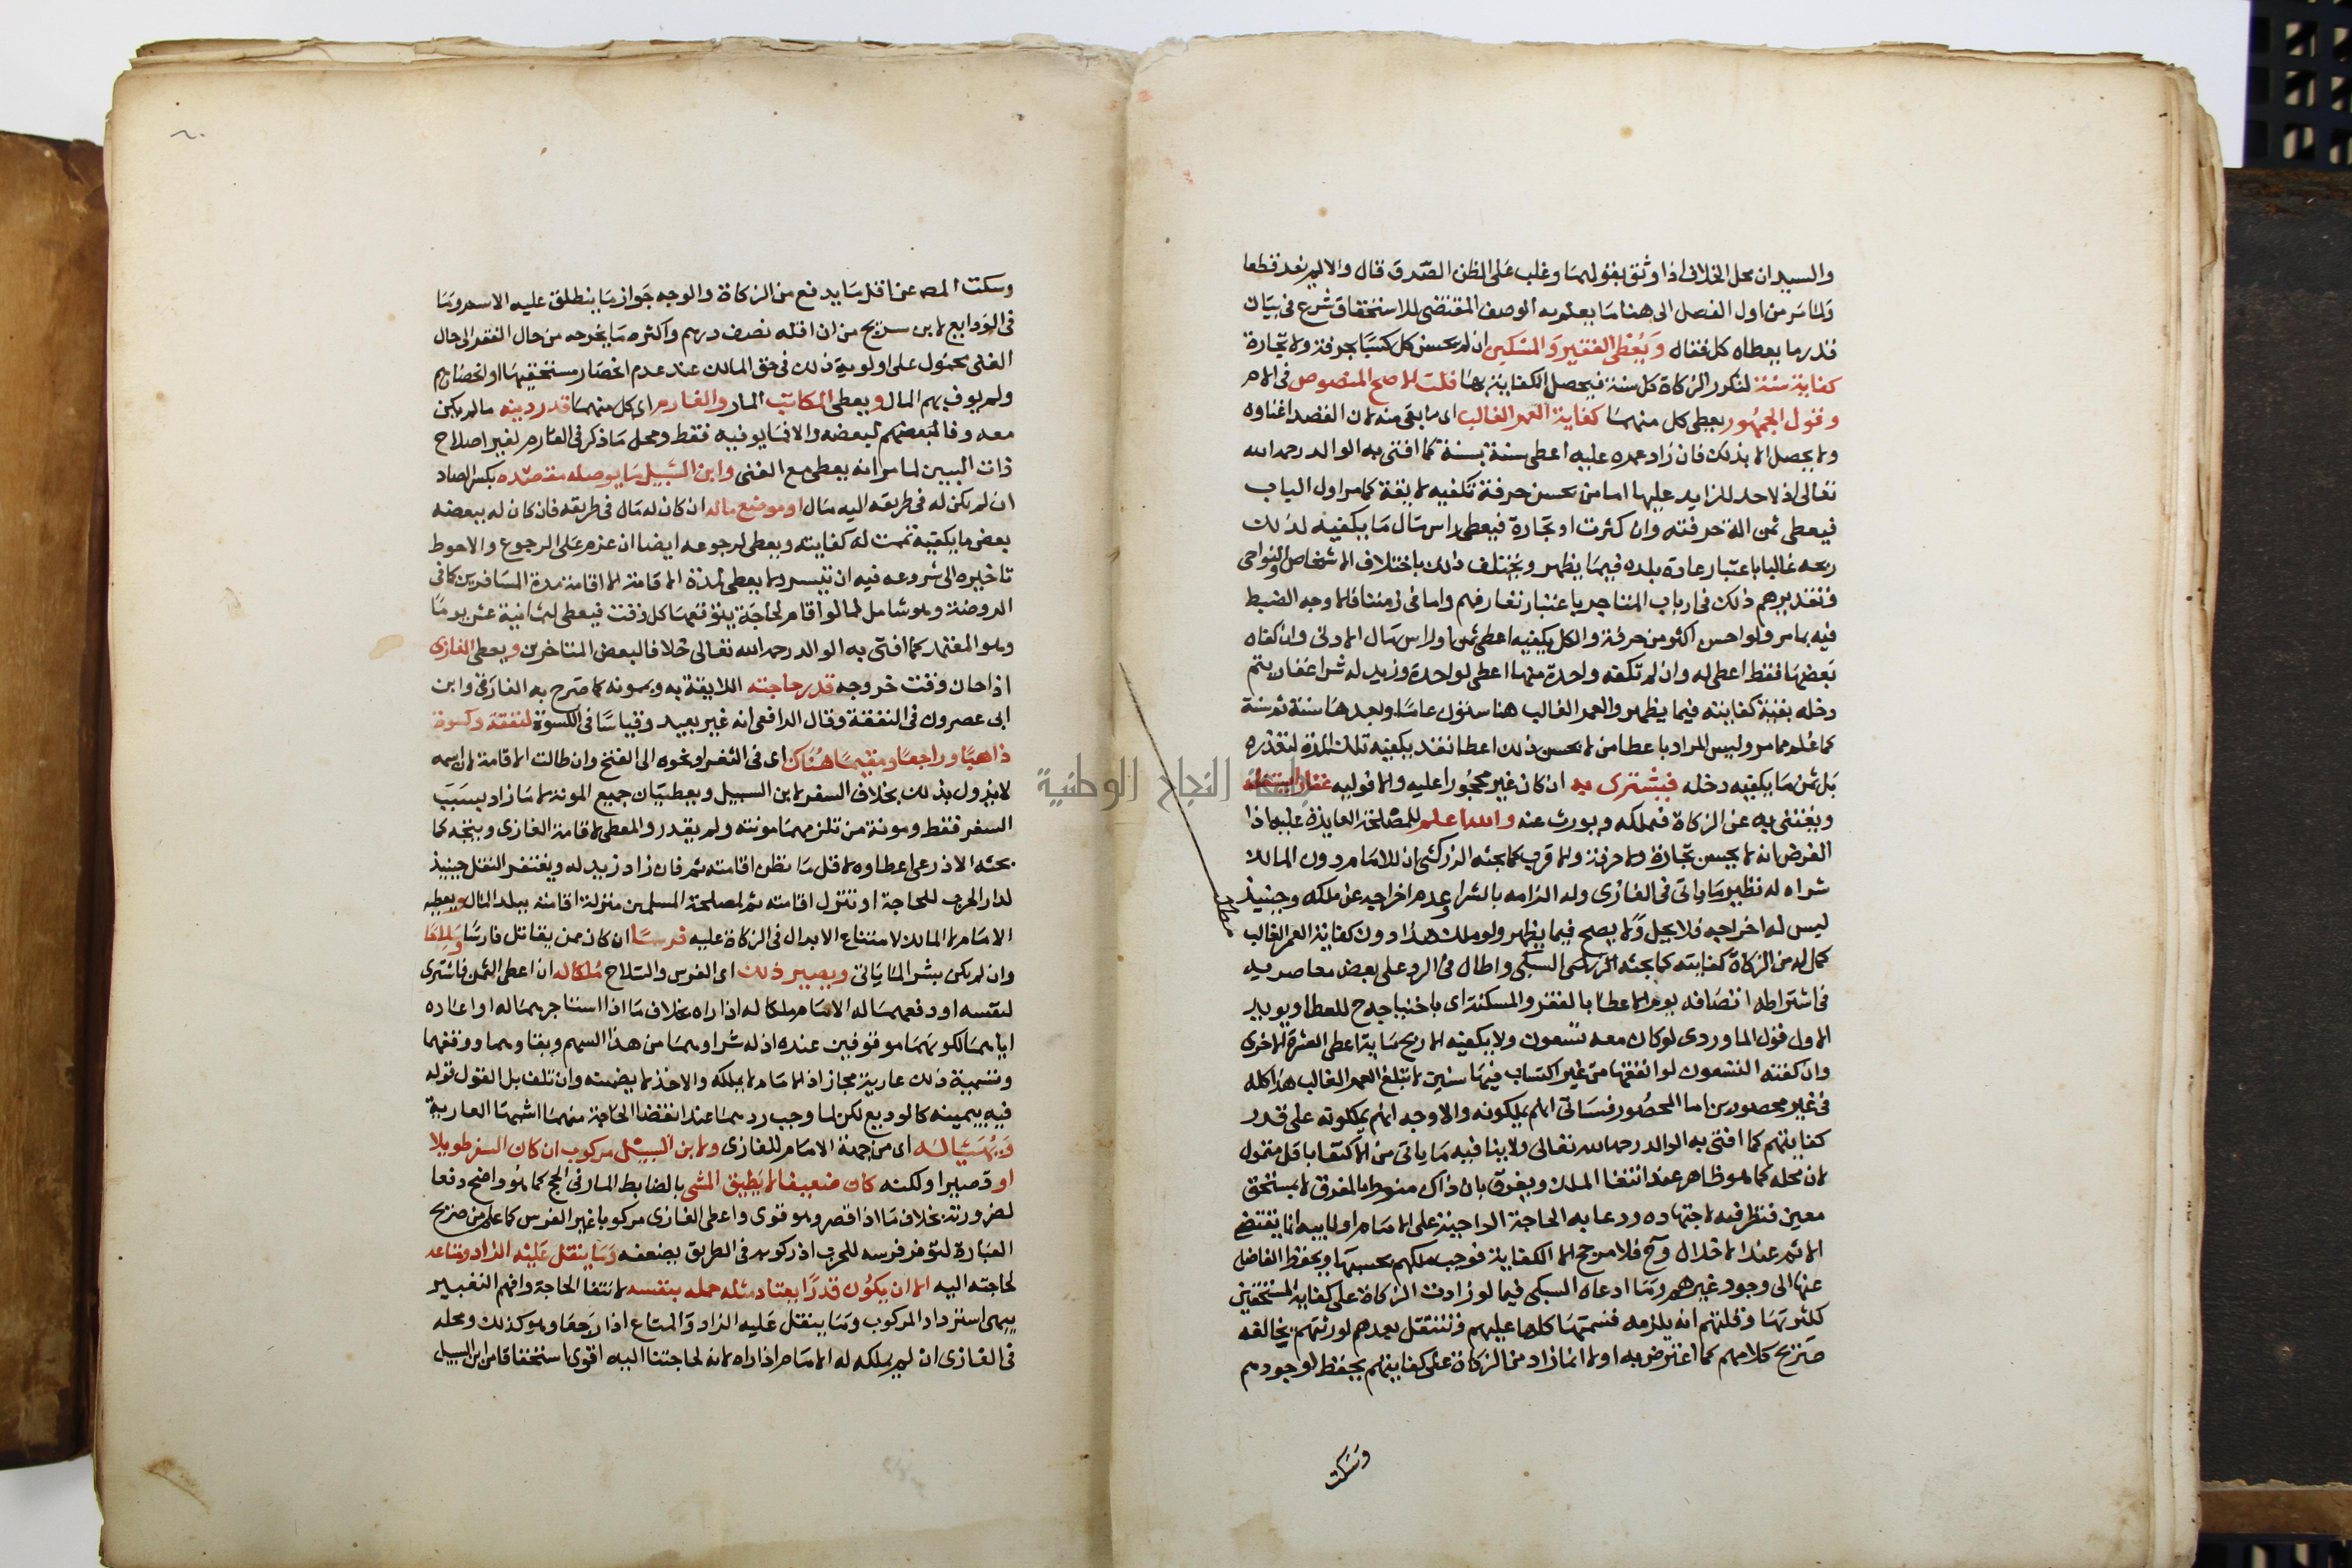 والسيد ان محل الخلاف اذا وثق بقولهما وغلب على الظن الصدق قال والا لم يفد قطعا
ولما مر من اول الفصل الى هنا ما يعلم به الوصف المقتضى للاستحقاق شرع في بيان
قدر ما يعطاه كل فقال ويعطى الفقير والمسكين ان لم يحسن كل كسبا بحرفة ولا تجارة
كفاية سنة لتكرر الزكاة كل سنة فيحصل الكفاية بها قلت الاصح المنصوص في الام
وقول الجمهور يعطى كل منهما كفاية العمر الغالب اى ما بقى منه لان القصد اغناوه
ولا يحصل الا بذلك فان زاد عمره عليه اعطى سنة بسنة كما افتى به الوالد رحمه الله
تعالى اذ لا حد للزايد عليها اما من يحسن حرفة تكفيه لايقة كما مر اول الباب
فيعطى ثمن الة حرفته وان كثرت او تجارة فيعطى راس مال ما يكفيه لذلك
ربحه غالبا باعتبار عادة بلده فيما يظهر ويختلف ذلك باختلاف الاشخاص والنواحى
وتقديرهم ذلك في ارباب المتاجر باعتبار تعارفهم واما في زمننا فالاوجه الضبط
فيه بما مر ولو احسن اكثر من حرفة والكل يكفيه اعطى ثمن او راس مال الادنى وان كفاه
بعضها فقط اعطى له وان لم تكفه واحدة منها اعطى لواحدة وزيد له شرا عقار يتم
دخله بقية كفايته فيما يظهر والعمر الغالب هنا ستون عاما وبعدها سنة ثم سنة
كما علم مما مر وليس المراد باعطا من لا يحسن ذلك اعطا نقد يكفيه تلك المدة لتعذره
بل ثمن ما يكفيه دخله فيشترى به ان كان غير محجورا عليه والا فوليه عقارا يستغله
ويغتنى به عن الزكاة فيملكه ويورث عنه والله اعلم للمصلحة العايدة عليه اذا
الفرض انه لا يحسن تجارة ولا حرفة والاقرب كما بحثه الزركشى ان للامام دون المالك
شراه له نظير ما ياتى في الغازى وله الزامه بالشرا وعدم اخراجه عن ملكه وحينيذ
ليس له اخراجه فلا يحل ولا يصح فيما يظهر ولو ملك هذا دون كفاية العمر الغالب
كمل له من الزكاة كفايته كما بحثه السبكى واطال في الرد على بعض معاصريه
في اشتراطه اتصافه يوم الاعطا بالفقر والمسكنة اى باحتياجه ح للعطا ويويد
الاول قول الماوردى لو كان معه تسعون ولا يكفيه الا ربح ماية اعطى العشرة الاخرى
وان كفته التسعون لو انفقها من غير اكتساب فيها سنين لا تبلغ العمر الغالب هذا كله
في غير محصورين اما المحصور فسياتى انهم يملكونه والاوجه انهم يملكونه على قدر
كفايتهم كما افتى به الوالد رحمه الله تعالى ولا ينافيه ما ياتى من الاكتفا باقل متمول
لان محله كما هو ظاهر عند انتفا الملك ويفرق بان ذاك منوط بالمفرق لا بمستحق
معين فنظر فيه لاجتهاده ورعايه الحاجة الواجبة على الامام او نايبه انما يقتضى
الاثم عند الاخلال وح فلا مرجح الا الكفاية فوجب ملكهم بحسبها ويحفظ الفاضل
عنها الى وجود غيرهم وما ادعاه السبكى فيما لو زادت الزكاة على كفاية المستحقين
لكثرتها وقلتهم انه يلزمه قسمتها كلها عليهم وتنتقل بعدهم لورثتهم يخالفه
صريح كلامهم كما اعترض به اولا انما زاد من الزكاة على كفايتهم يحفظ لوجودهم
وسكت
وسكت المصـ عن اقل ما يدفع من الزكاة والوجه جواز ما ينطلق عليه الاسم وما
في الودايع لابن سريج من ان اقله نصف درهم واكثره ما يخرجه من حال الفقر الى حال
الغنى محمول على اولوية ذلك في حق المالك عند عدم انحصار مستحقيها او انحصارهم
ولم يوف بهم المال ويعطى المكاتب المار والغارم اى كل منهما قدر دينه ما لم يكن
معه وفا لبعضهم لبعضه والا فما يوفيه فقط ومحل ما ذكر في الغارم لغير اصلاح
ذات البين لما مر انه يعطى مع الغنى وابن السبيل ما يوصله مقصده بكسر الصاد
ان لم يكن له في طريقه اليه مال او موضع ماله ان كان له مال في طريقه فان كان له ببعضه
بعض ما يكفيه تممت له كفايته ويعطى لرجوعه ايضا ان عزم على الرجوع والاحوط
تاخيره الى شروعه فيه ان تيسر ولا يعطى لمدة الاقامة الا اقامة مدة المسافرين كما في
الروضة وهو شامل لما لو اقام لحاجة يتوقعها كل وقت فيعطى لثمانية عشر يوما
وهو المعتمد كما افتى به الوالد رحمه الله تعالى خلافا لبعض المتاخرين ويعطى الغازى
اذا حان وقت خروجه قدر حاجته اللايقة به وبمونه كما صرح به الفارقى وابن
ابى عصرون في النفقة وقال الرافعى انه غير بعيد وقياسا في الكسوة لنفقة وكسوة
ذاهبا وراجعا ومقيما هناك اى في الثغر او نحوه الى الفتح وان طالت الاقامة لان اسمه
لا يزول بذلك بخلاف السفر لابن السبيل ويعطيان جميع المونة لا ما زاد بسبب
السفر فقط ومونة من تلزمهما مونته ولم يقدروا المعطى لاقامة الغازى ويتجه كما
بحثه الاذرعى اعطاوه لاقل ما يظن اقامته ثم فان زاد زيد له ويغتفر النقل حينيذ
لدار الحرب للحاجة او تنزل اقامته ثم لمصلحة المسلمين منزلة اقامته ببلد المال ويعطيه
الامام لا المالك لامتناع الابدال في الزكاة عليه فرسا ان كان ممن يقاتل فارسا وسلاحا
وان لم يكن بشرا لما ياتى ويصير ذلك اى الفرس والسلاح ملكا له ان اعطى الثمن فاشترى
لنفسه او دفعهما له الامام ملكا له اذا راه بخلاف ما اذا استاجرهما له او اعاره
اياهما لكونهما موقوفين عنده اذ له شراوهما من هذا السهم وبقاوهما ووقفهما
وتسمية ذلك عارية مجاز اذ الامام لا يملكه والاخذ لا يضمنه وان تلف بل القول قوله
فيه بيمينه كالوديع لكن لما وجب ردهما عند انقضا الحاجة منهما اشبها العارية
ويهيا له اى من جهة الامام للغازى ولابن السبيل مركوب ان كان السفر طويلا
او قصيرا ولكنه كان ضعيفا لا يطيق المشى بالضابط المار في الحج كما هو واضح دفعا
لضرورته بخلاف ما اذا قصر وهو قوى واعطى الغازى مركوبا غير الفرس كما علم من صريح
العبارة لتوفر فرسه للحرب اذ ركوبه في الطريق يضعفه وما ينقل عليه الزاد ومتاعه
لحاجته اليه الا ان يكون قدرا يعتاد مثله حمله بنفسه لانتفا الحاجة وافهم التعبير
بيهيا استرداد المركوب وما ينقل عليه الزاد والمتاع اذا رجعا وهو كذلك ومحله
في الغازى ان لم يملكه له الامام اذا راه لانه لحاجتنا اليه اقوى استحقاقا من ابن السبيل
جامعة النجاح الوطنية